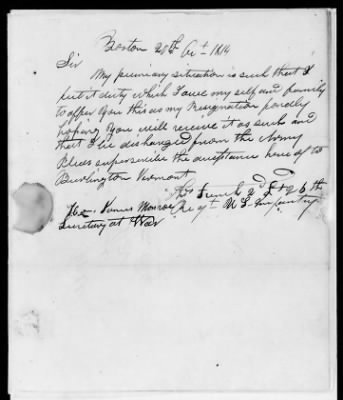 Boston 20th Oct 1814
Sir
My pecuniary situation is such that I
put it duty which I owe my self and family
to offer you this as my Resignation
hoping you will receive it as such and
that I be discharged from the Army
Pleas superscribe the acceptance hereof to
Burlington Vermont
French 2d Lt 26th
Hon. James Monroe Regt U S Infantry
Secretary at War